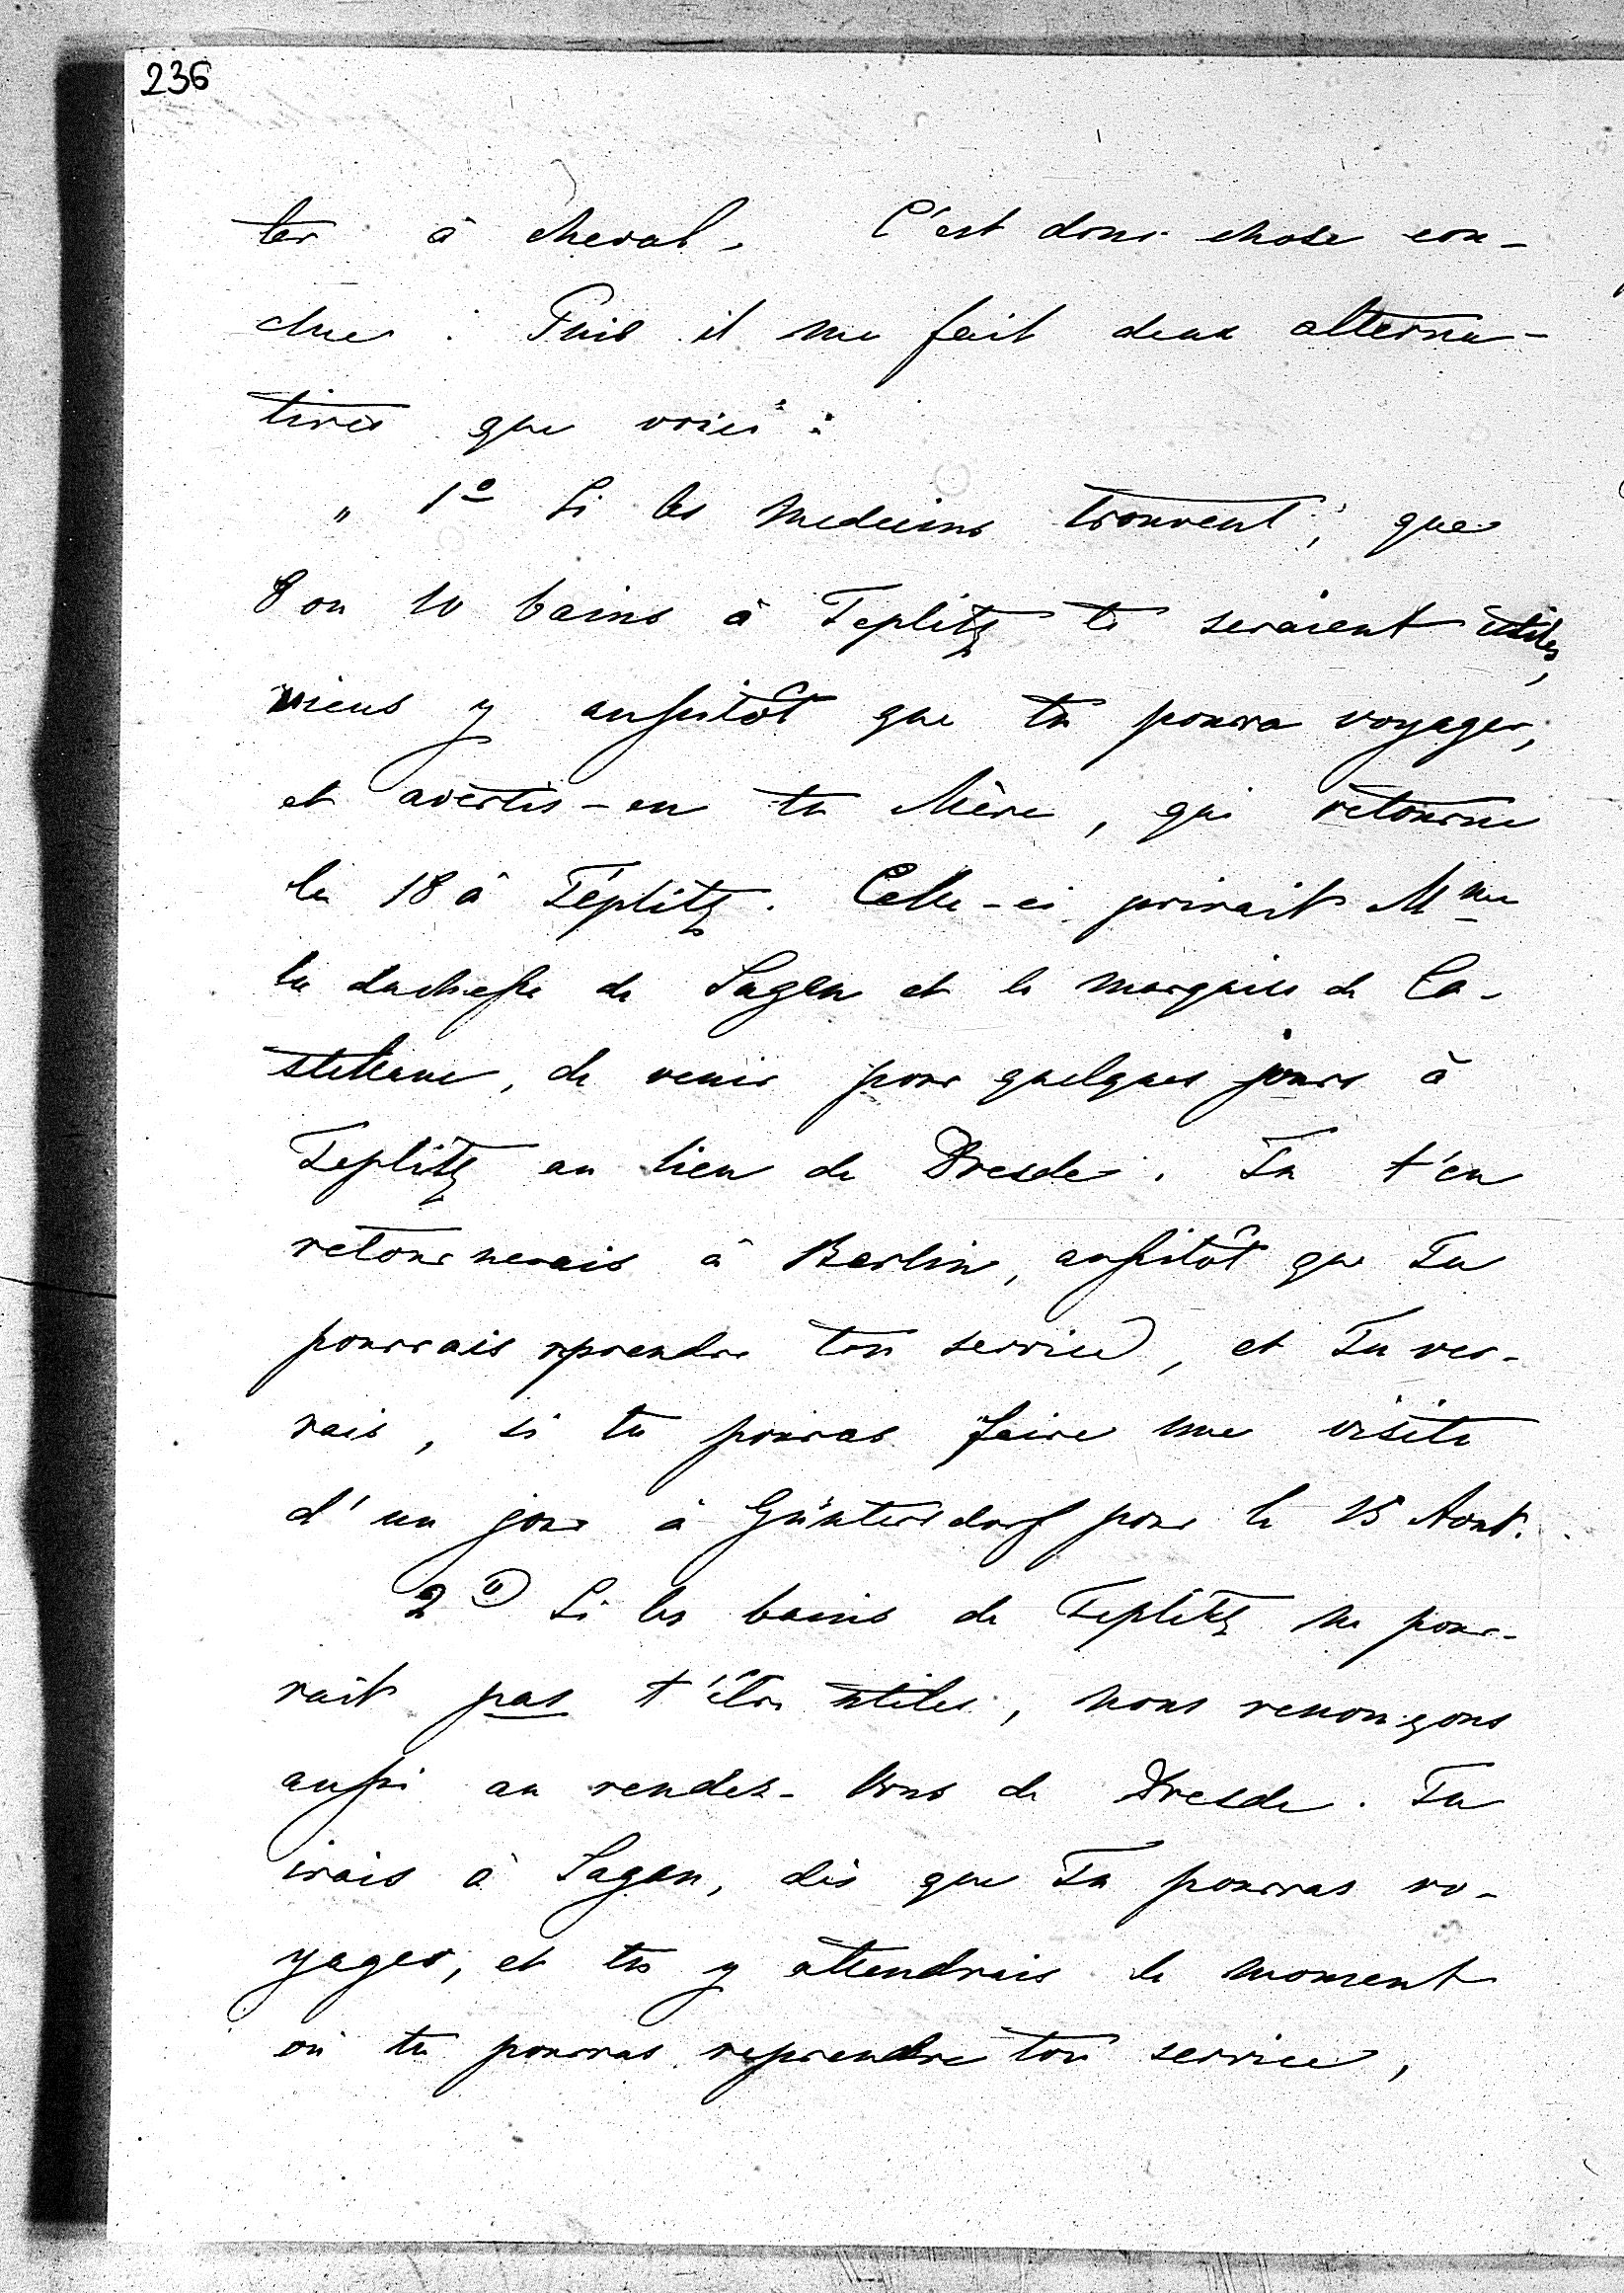 236
ter à cheval. C'est donc chose con-
clue. Puis il me fait deux alterna-
tives que voici :
„ 1º Si les medecins trouvent, que
8 ou 10 bains à Teplitz te seraient utiles,
viens y aussitôt que tu pourra voyager,
et avertis-en ta Mère, qui retourne
le 18 à Téplitz. Celle-ci prirait Mme
la duchesse de Sagan et le marquis de Ca-
stellane, de venir pour quelques jours à
Teplitz au lieu de Dresde. Tu t'en
retournerais à Berlin, aussitôt que Tu
pourrais reprendre ton service, et Tu ver-
rais, si tu pouras faire une visite
d'un jour à Güntersdorf pour le 15 Aout.
2º Si les bains de Teplitz ne pour-
rait pas t'être utiles, nous renonçons
aussi au rendez-vous de Dresde. Tu
irais à Sagan, dès que Tu pourras vo-
yager, et tu y attendrais le moment
où tu pourras reprendre ton service,